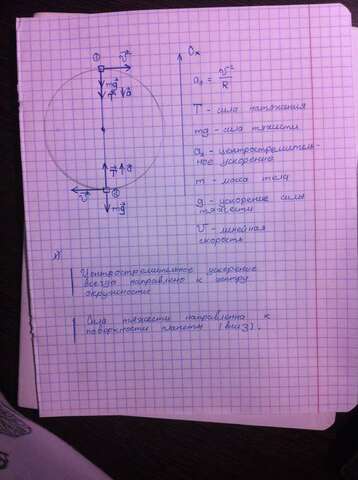 ①
v
Ox
mg
T a
aц = v²/R
T - сила натяжения
mg - сила тяжести
aц - центростремитель-
ное ускорение
m - масса тела
g - ускорение силы
тяжести
v - линейная
скорость
T a
v
②
mg
Центростремительное ускорение
всегда направлено к центру
окружности
Сила тяжести направлена к
поверхности планеты (вниз).